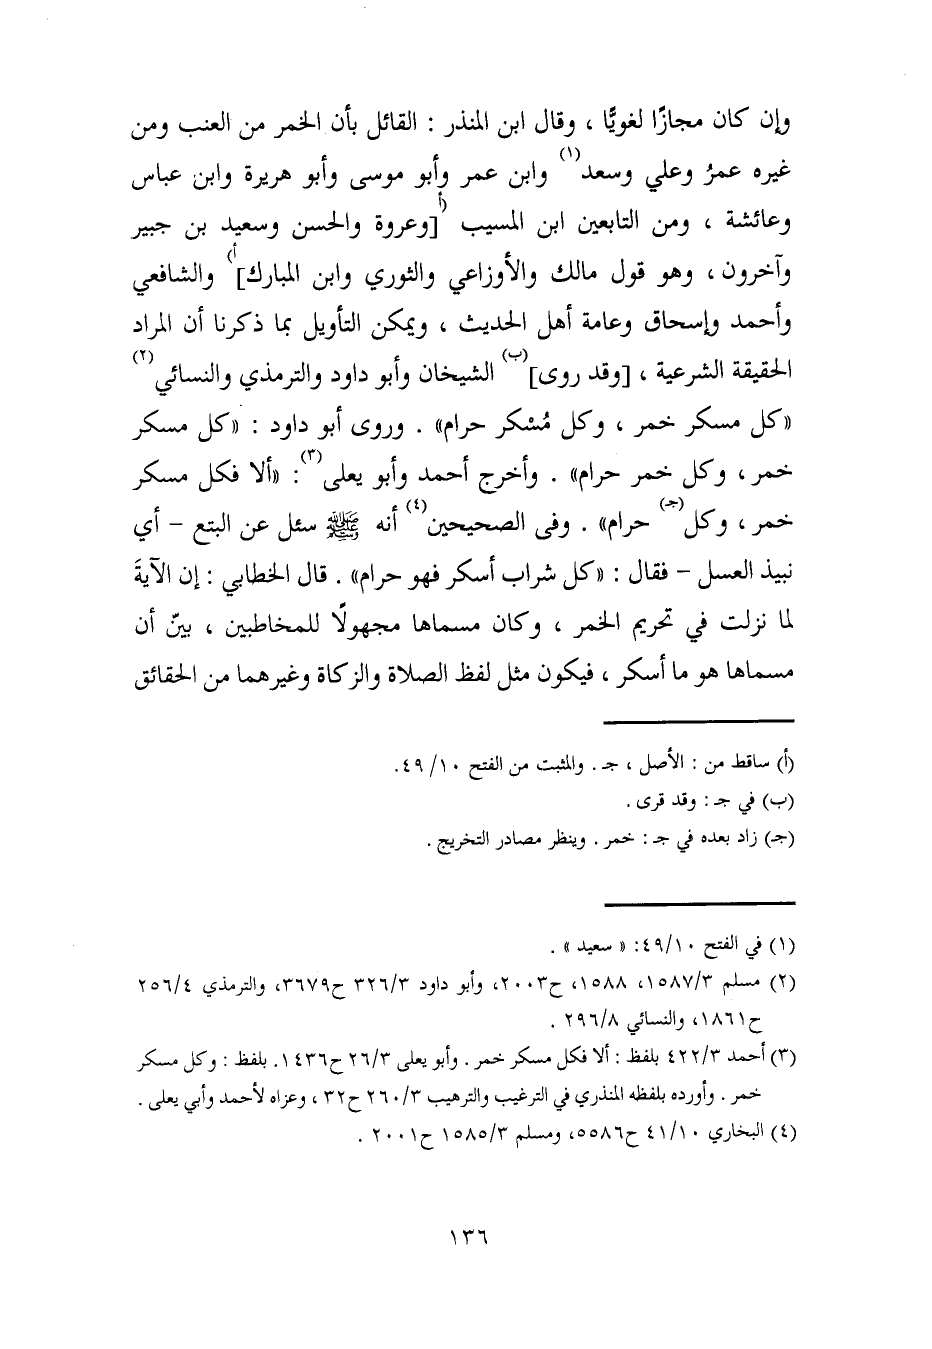 وإن كان مجازًا لغويًّا ، وقال ابن المنذر : القائل بأن الخمر من العنب ومن
غيره عمرُ وعلي وسعد(١) وابن عمر وأبو موسى وأبو هريرة وابن عباس
وعائشة ، ومن التابعين ابن المسيب (أ[وعروة والحسن وسعيد بن جبير
وآخرون ، وهو قول مالك والأوزاعي والثوري وابن المبارك]أ) والشافعي
وأحمد وإسحاق وعامة أهل الحديث ، ويمكن التأويل بما ذكرنا أن المراد
الحقيقة الشرعية ، [وقد روى](ب) الشيخان وأبو داود والترمذي والنسائي(٢)
«كل مسكر خمر ، وكل مُسْكر حرام» . وروى أبو داود : «كل مسكر
خمر ، وكل خمر حرام» . وأخرج أحمد وأبو يعلى(٣): «ألا فكل مسكر
خمر ، وكل(جـ) حرام» . وفى الصحيحين(٤) أنه ﷺ سئل عن البتع - أي
نبيذ العسل - فقال : «كل شراب أسكر فهو حرام» . قال الخطابي : إن الآيةَ
لما نزلت في تحريم الخمر ، وكان مسماها مجهولًا للمخاطبين ، بيّن أن
مسماها هو ما أسكر ، فيكون مثل لفظ الصلاة والزكاة وغيرهما من الحقائق
(أ) ساقط من : الأصل ، جـ . والمثبت من الفتح ١٠/ ٤٩.
(ب) في جـ : وقد قرى .
(جـ) زاد بعده في جـ : خمر . وينظر مصادر التخريج .
(١) في الفتح ٤٩/١٠: « سعيد » .
(٢) مسلم ١٥٨٧/٣، ١٥٨٨، ح٢٠٠٣، وأبو داود ٣٢٦/٣ ح٣٦٧٩، والترمذي ٢٥٦/٤
ح١٨٦١، والنسائي ٢٩٦/٨ .
(٣) أحمد ٤٢٢/٣ بلفظ : ألا فكل مسكر خمر . وأبو يعلى ٢٦/٣ ح١٤٣٦. بلفظ : وكل مسكر
خمر . وأورده بلفظه المنذري في الترغيب والترهيب ٢٦٠/٣ ح٣٢ ، وعزاه لأحمد وأبي يعلى .
(٤) البخاري ٤١/١٠ ح٥٥٨٦، ومسلم ١٥٨٥/٣ ح٢٠٠١ .
١٣٦